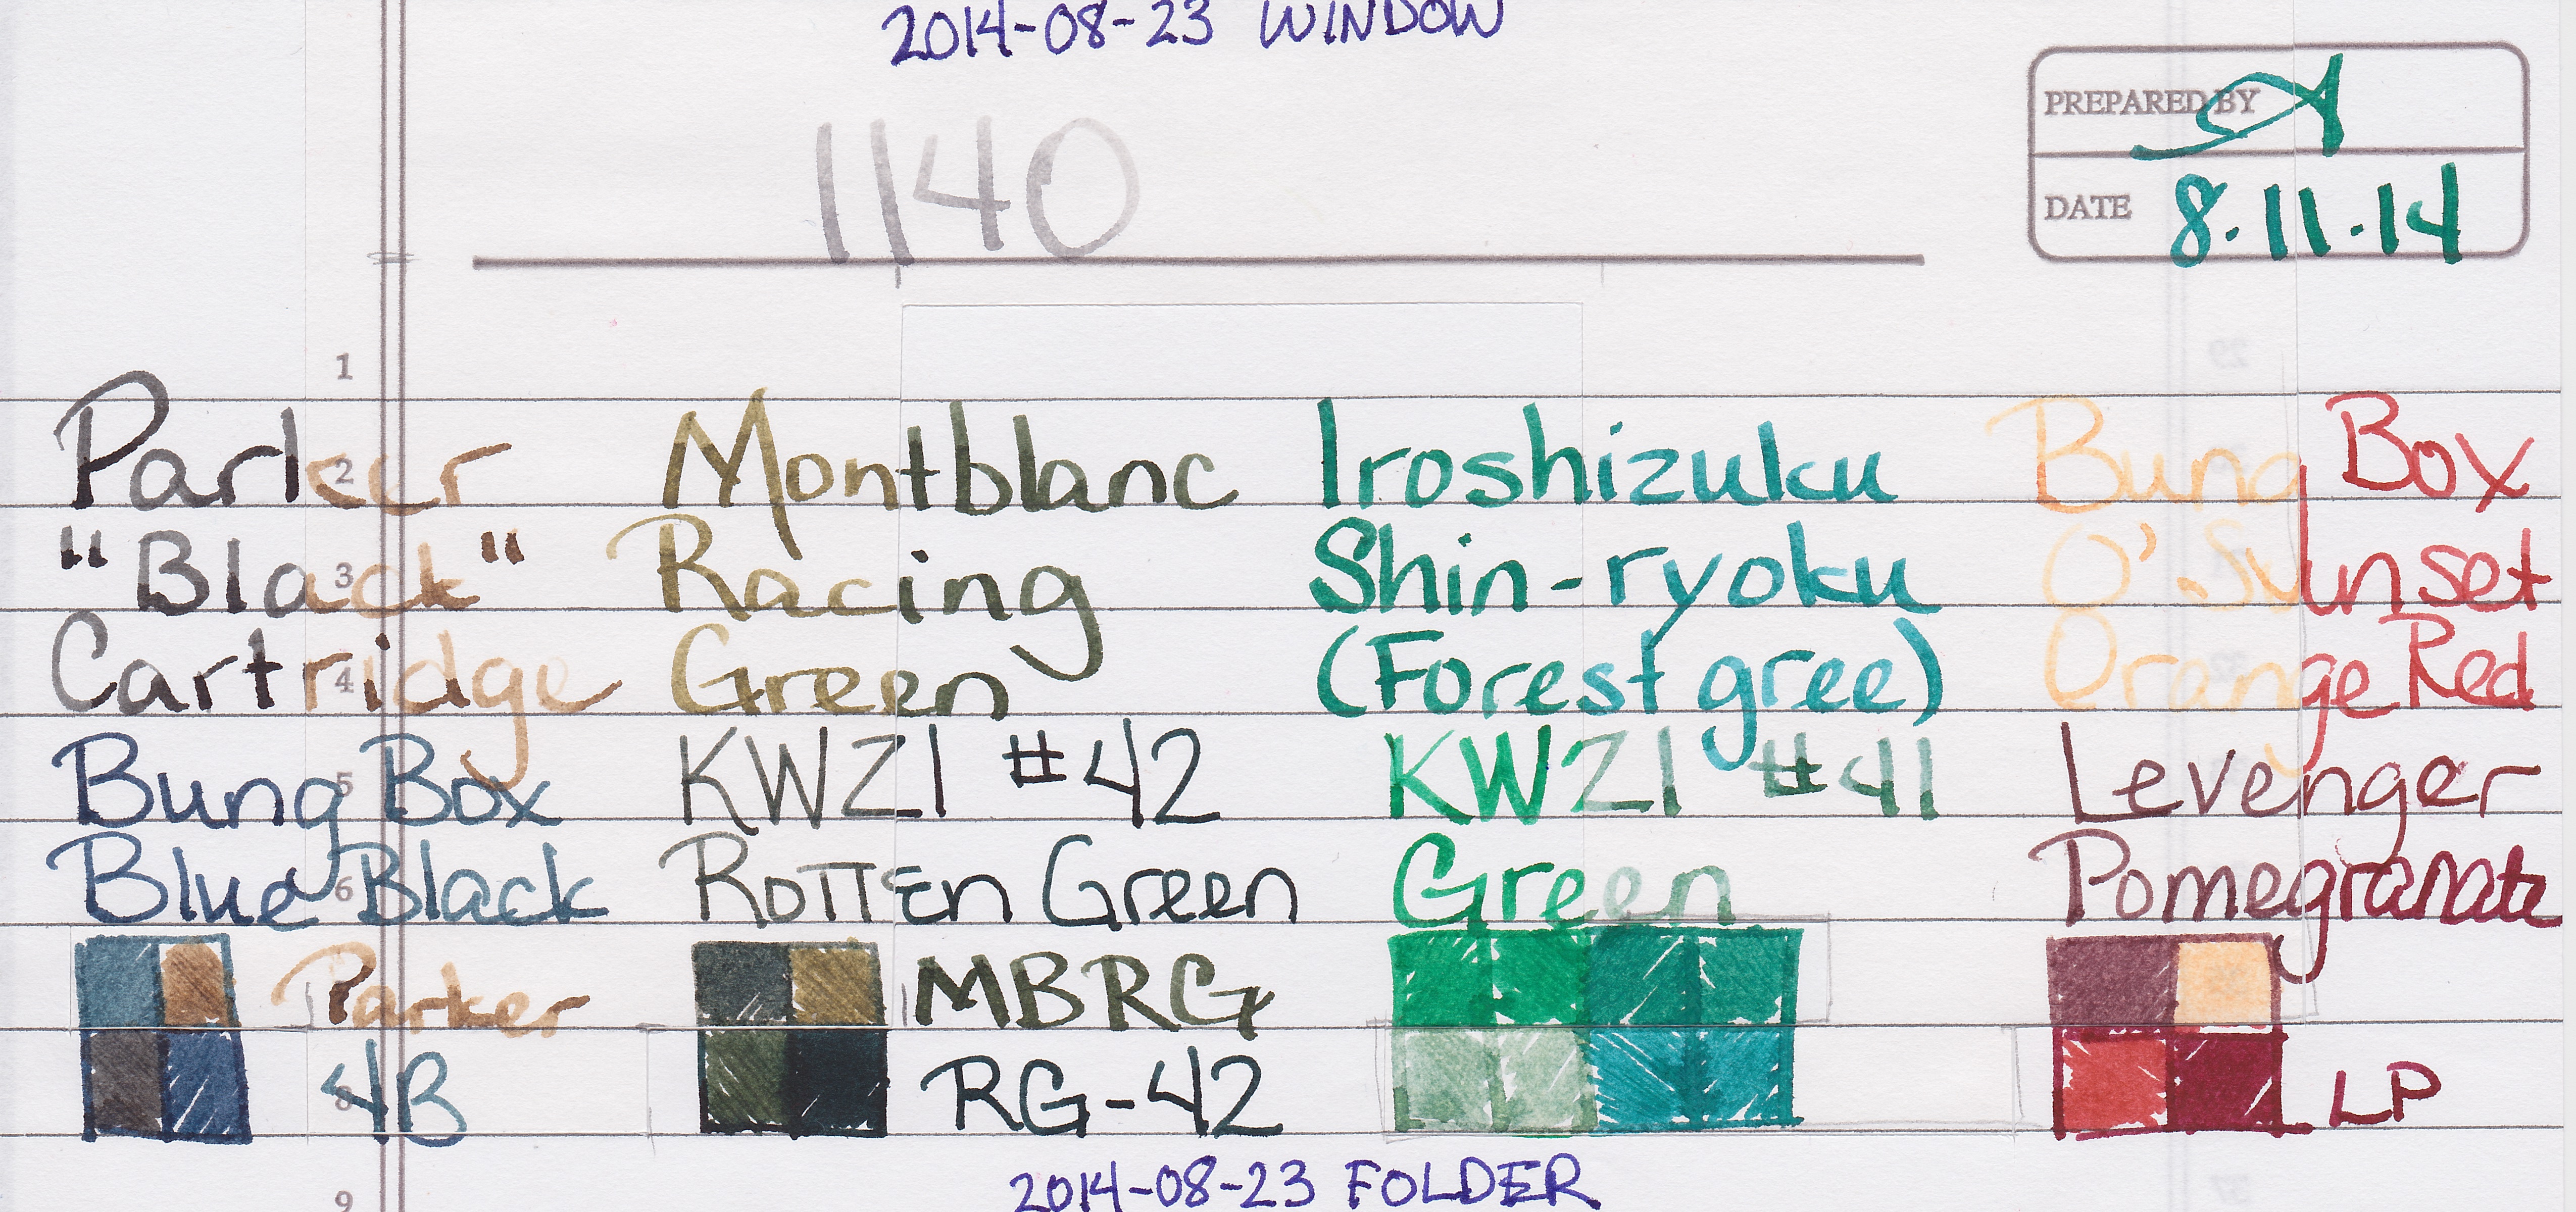 2014-08-23 WINDOW
1140
PREPARED BY
DATE 8.11.14
1
2
3
4
5
6
8
9
Parker
"Black"
Cartridge
Bung Box
Blue Black
Parker
4B
Montblanc
Racing
Green
KWZI #42
Rotten Green
MBRG
RG-42
Iroshizuku
Shin-ryoku
(Forest gree)
KWZI #41
Green
Bung Box
O'.Sunset
Orange Red
Levenger
Pomegranate
LP
2014-08-23 FOLDER